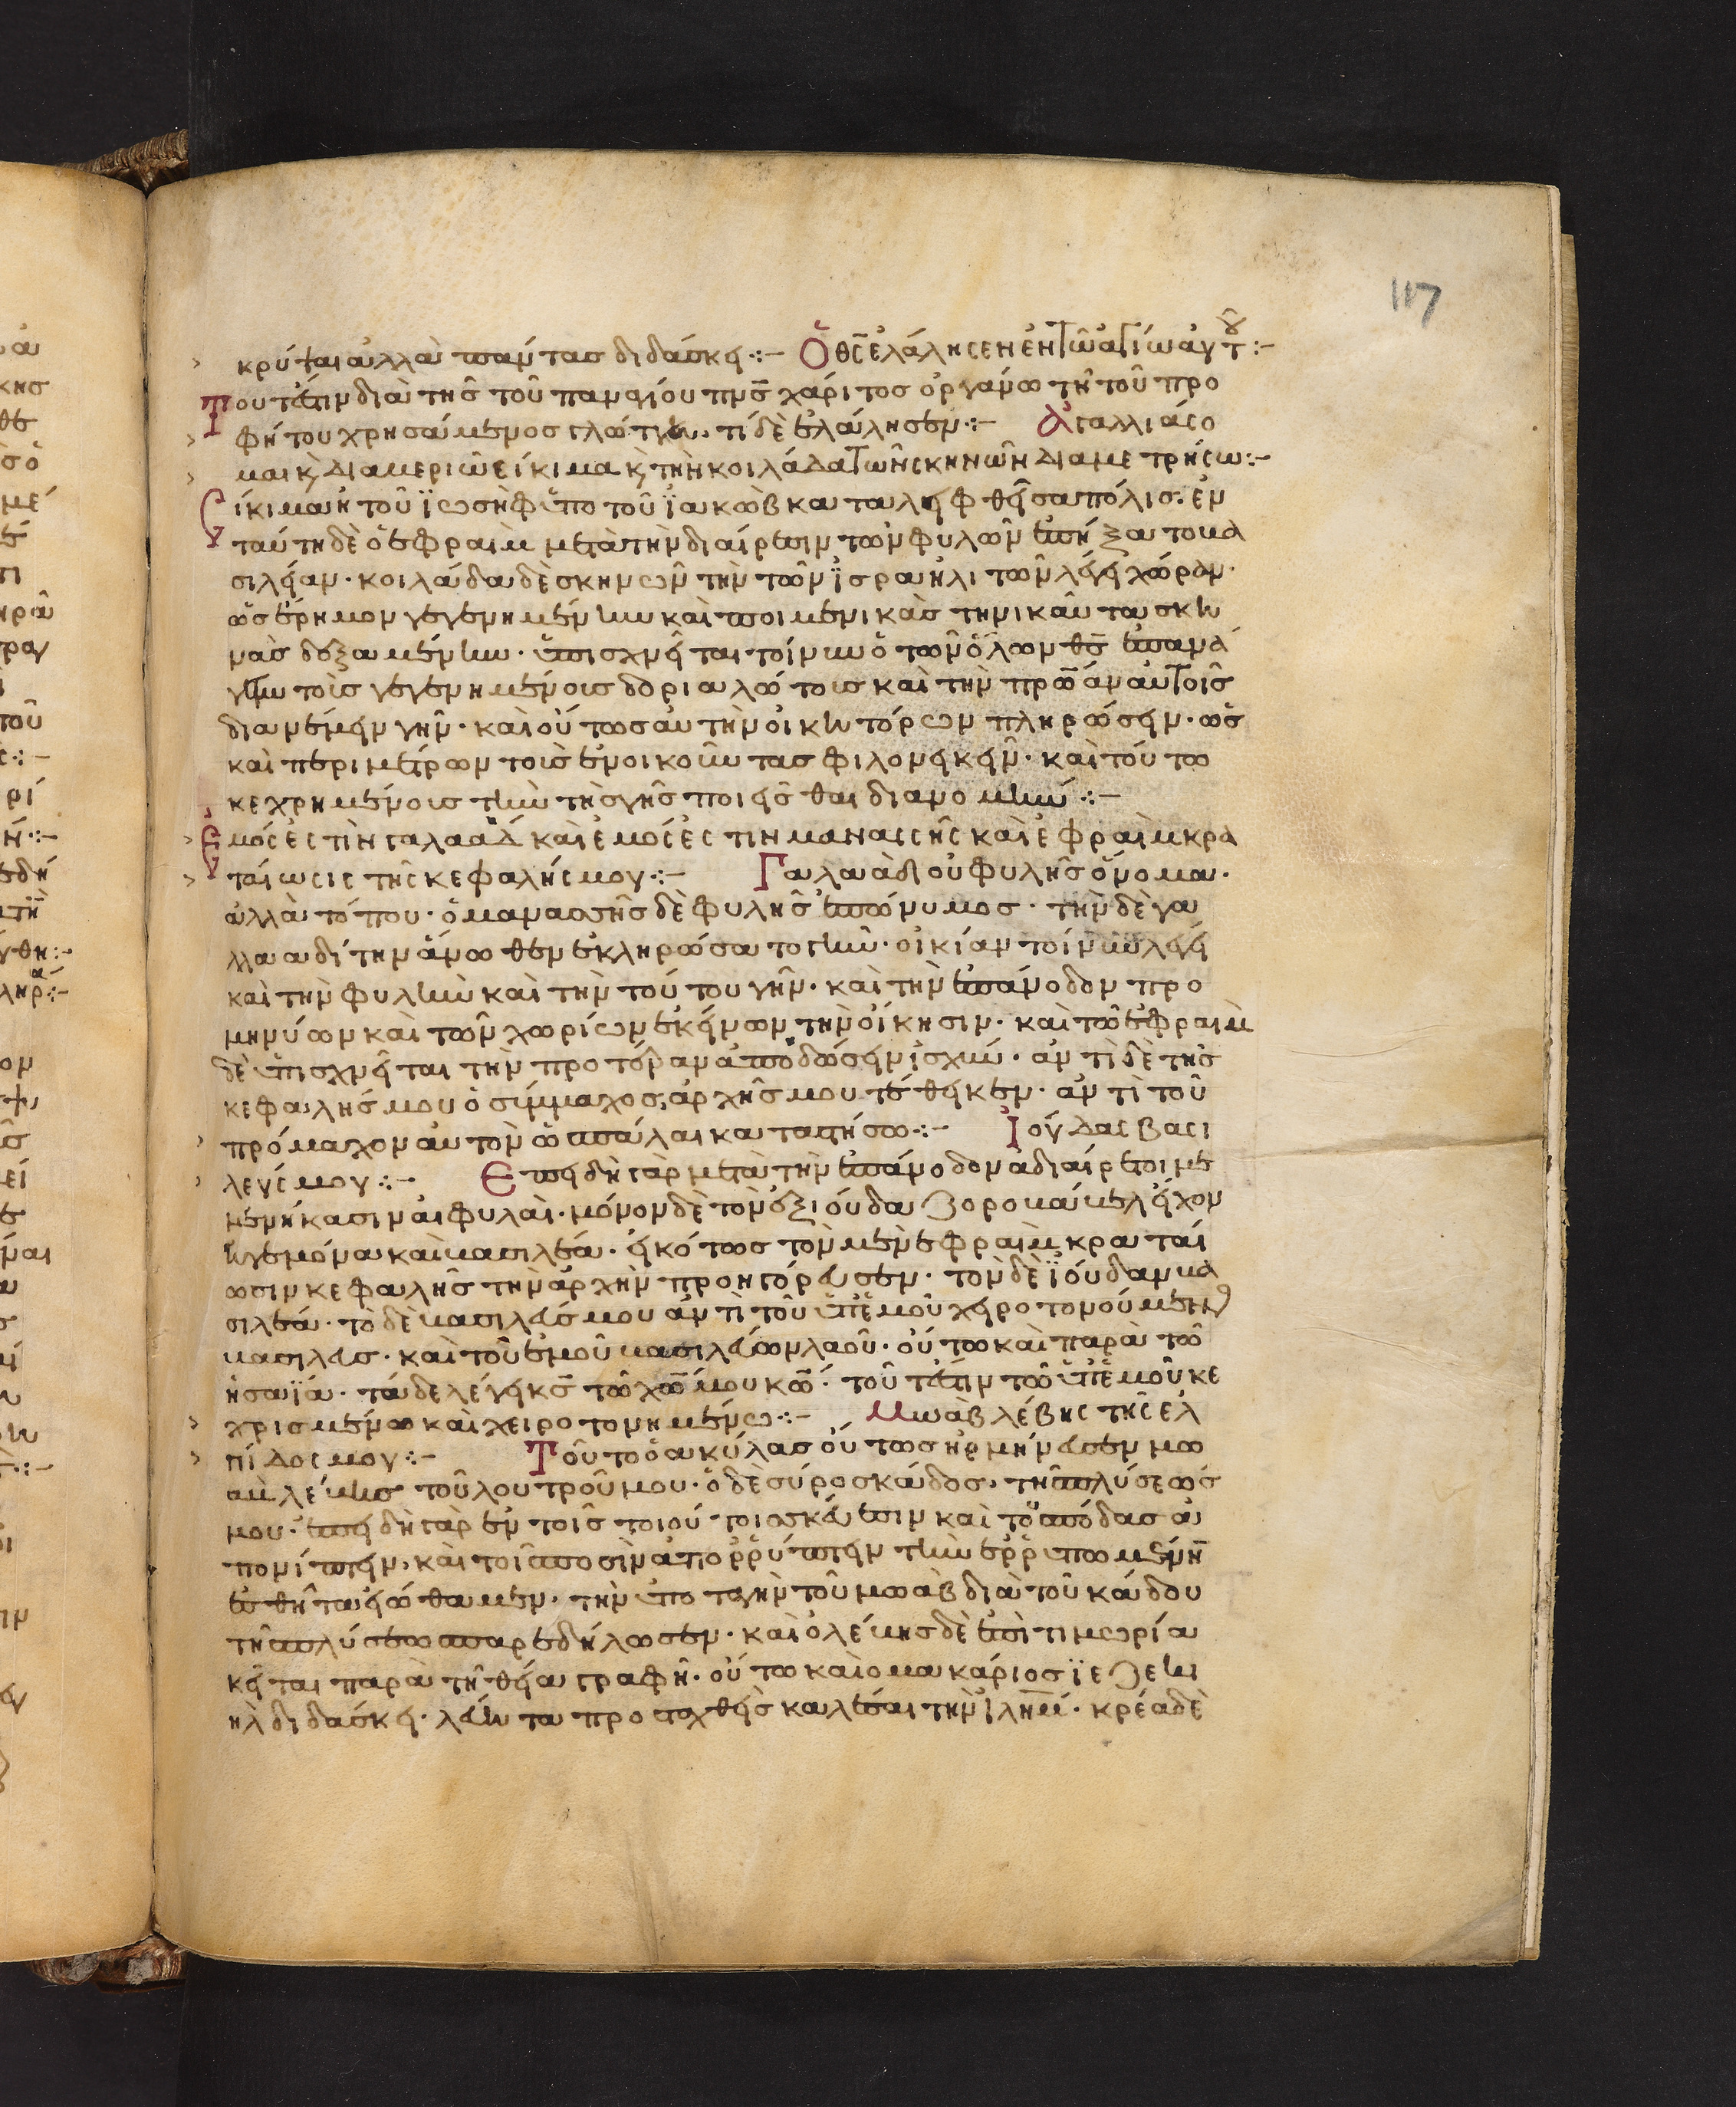 117
κρύπται ἀλλὰ πάντας διδάσκει ·:– Ὁ θς ἐλάλησεν ἐν τῶ ἁγίω αὐτοῦ :–
Τουτέστιν διὰ τῆς τοῦ παναγίου πνς χάριτος ὀργάνω τῆ τοῦ προ
φήτου χρησάμενος γλώττη. τί δὲ ἐλάλησεν ·:– Ἀγαλλιάσο
μαι κ διαμεριῶ σίκιμα κ τὴν κοιλάδα τῶν σκηνῶν διαμετρήσω :–
Σίκιμα ἡ τοῦ ϊωσὴφ ὑπὸ τοῦ ϊακὼβ καταλειφθεῖσα πόλις. ἐν
ταύτη δὲ ὁ ἐφραὶμ μετὰ τὴν διαίρεσιν τῶν φυλῶν ἐπήξατο βα
σιλείαν · κοιλάδα δὲ σκηνῶν τὴν τῶν ϊσραηλιτῶν λέγει χώραν ·
ὡς ἔρημον γεγενημένην καὶ ποιμενικὰς τηνικαῦτα σκη
νὰς δεξαμένην · ὑπισχνεῖται τοίνυν ὁ τῶν ὅλων θς ἐπανά
γειν τοὺς γεγενημένους δοριαλώτους καὶ τὴν προτέραν αὐτοῖς
διανέμειν γῆν · καὶ οὕτως αὐτὴν οἰκητόρων πληρώσειν · ὡς
καὶ περὶ μέτρων τοὺς ἐνοικοῦντας φιλονεικεῖν · καὶ τούτω
κεχρημένους τὴν τῆς γῆς ποιεῖσθαι διανομήν ·:–
Ἐμός ἐστιν γαλαὰδ καὶ ἐμός ἐστιν μανασσῆς καὶ ἐφραὶμ κρα
ταίωσις τῆς κεφαλῆς μου ·:– Γαλαὰδ οὐ φυλῆς ὄνομα ·
ἀλλὰ τόπου · ὁ μανασσῆς δὲ φυλῆς ἐπώνυμος · τὴν δὲ γα
λλααδίτην ἄνωθεν ἐκληρώσατο γῆν · οἰκίαν τοίνυν λέγει
καὶ τὴν φυλὴν καὶ τὴν τούτου γῆν · καὶ τὴν ἐπάνοδον προ
μηνύων καὶ τῶν χωρίων ἐκείνων τὴν οἴκησιν · καὶ τῶ ἐφραὶμ
δὲ ὑπισχνεῖται τὴν προτέραν ἀποδώσειν ἰσχύν · ἀντὶ δὲ τῆς
κεφαλῆς μου ὁ σύμμαχος, ἀρχῆς μου τέθεικεν · ἀντὶ τοῦ
πρόμαχον αὐτὸν ὡς πάλαι καταστήσω ·:– Ἰούδας βασι
λεύς μου ·:– Ἐπειδὴ γὰρ μετὰ τὴν ἐπάνοδον ἀδιαίρετοι με
μενήκασιν αἱ φυλαὶ · μόνον δὲ τὸν ἐξ ιούδα ζοροβάβελ εἶχον
ἡγεμόνα καὶ βασιλέα · εἰκότως τὸν μὲν ἐφραὶμ κραταί
ωσιν κεφαλῆς τὴν ἀρχὴν προηγόρευσεν · τὸν δὲ ϊούδαν βα
σιλέα · τὸ δὲ βασιλεύς μου ἀντὶ τοῦ ὑπ᾽ἐμοῦ χειροτονούμενος
βασιλεύς · καὶ τοῦ ἐμοῦ βασιλεύων λαοῦ · οὕτω καὶ παρὰ τῶ
ἡσαϊά · τάδε λέγει κς τῶ χω μου κω · τουτέστιν τῶ ὑπ᾽ἐμοῦ κε
χρισμένω καὶ χειροτονημένω ·:– Μωὰβ λέβης τῆς ἐλ
πίδος μου ·:– Τοῦτο ὁ ἀκύλας οὕτως ἡρμήνευσεν μω
ὰβ λέβης τοῦ λουτροῦ μου · ὁ δὲ σύρος κάδος, τῆς πλύσεώς
μου · ἐπειδὴ γὰρ ἐν τοῖς τοιούτοις σκεύεσιν καὶ τοὺς πόδας ἀ
πονίπτειν, καὶ τοῖς ποσὶν ἀπορρύπτειν τὴν ἐρρυπωμένην
ἐσθῆτα εἰώθαμεν · τὴν ὑποταγὴν τοῦ μωὰβ διὰ τοῦ κάδου
τῆς πλύσεως παρεδήλωσεν · καὶ ὁ λέβης δὲ ἐπὶ τιμωρία
κεῖται παρὰ τῆ θεία γραφῆ · οὕτω καὶ ὁ μακάριος ϊεζεκι
ὴλ διδάσκει · λέβητα προσταχθεὶς καλέσαι τὴν ϊλημ · κρέα δὲ